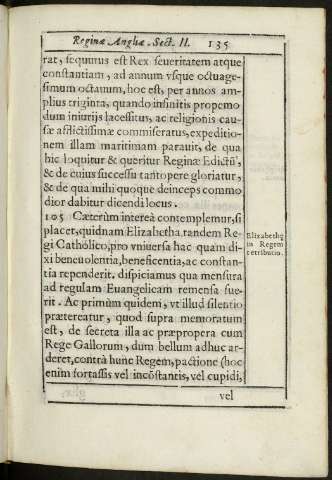 Reginæ Angliæ. Sect. II. 135
rat, sequutus est Rex seueritatem atque
constantiam, ad annum vsque octuage-
simum octauum, hoc est, per annos am-
plius triginta, quando infinitis propemo
dum iniurijs lacessitus, ac religionis cau-
sæ afflictissimæ commiseratus, expeditio-
nem illam maritimam parauit, de qua
hic loquitur & queritur Reginæ Edictũ,
& de cuius successu tantopere gloriatur,
& de qua mihi quoque deinceps commo
dior dabitur dicendi locus.
105 Cæterùm intereà contemplemur, si
placet, quidnam Elizabetha tandem Re-
gi Cathòlico, pro vniuersa hac quam di-
xi beneuolentia, beneficentia, ac constan-
tia rependerit. dispiciamus qua mensura
ad regulam Euangelicam remensa fue-
rit. Ac primùm quidem, vt illud silentio
prætereatur, quod supra memoratum
est, de secreta illa ac præpropera cum
Rege Gallorum, dum bellum adhuc ar-
deret, contrà hunc Regem, pactione (hoc
enim fortassis vel incõstantis, vel cupidi,
vel
Elizabethę
in Regem
retributio.